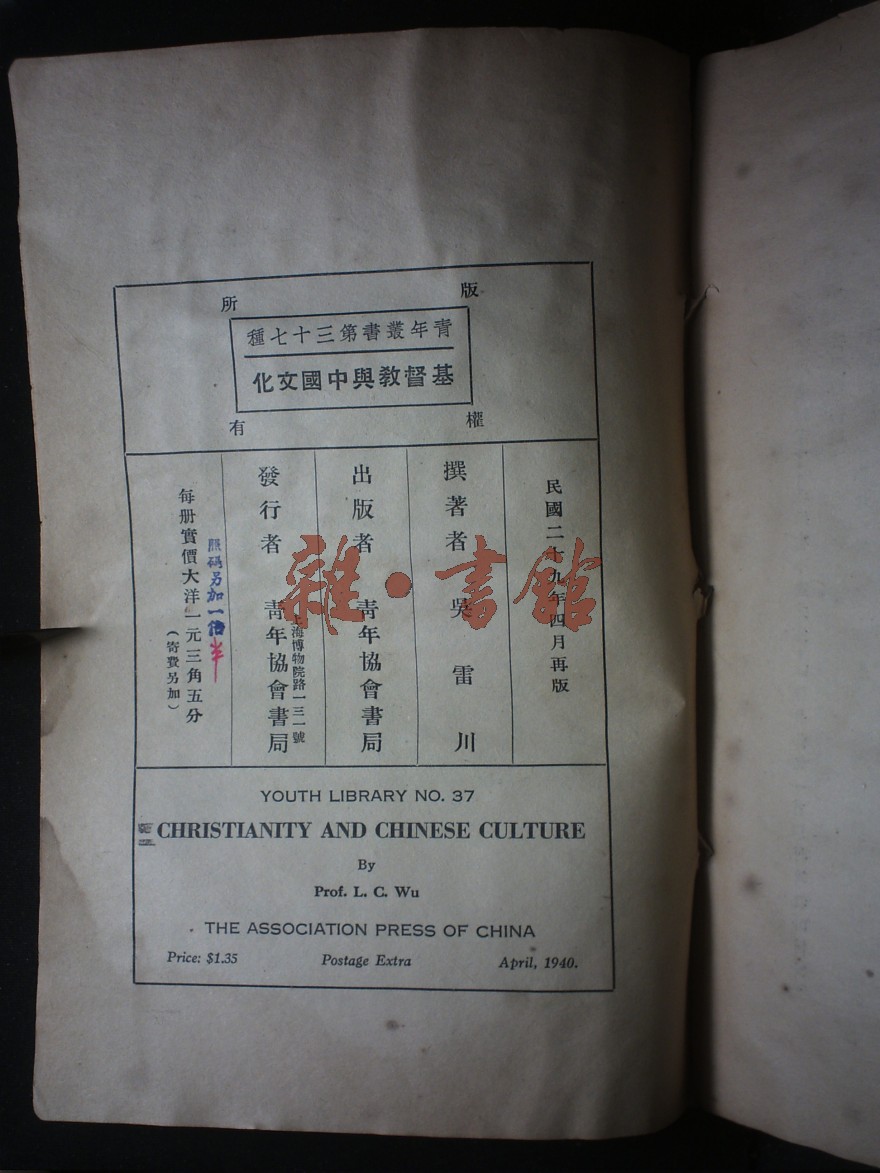 版權所有
青年叢書第三十七種
基督教與中國文化
民國二十九年四月再版
撰著者 吳雷川
出版者 青年協會書局
發行者 青年協會書局
上海博物院路一三一號
每册實價大洋一元三角五分
（寄費另加）
照碼另加一倍半
雜·書館
YOUTH LIBRARY NO. 37
CHRISTIANITY AND CHINESE CULTURE
By
Prof. L. C. Wu
THE ASSOCIATION PRESS OF CHINA
Price: $1.35 Postage Extra April, 1940.